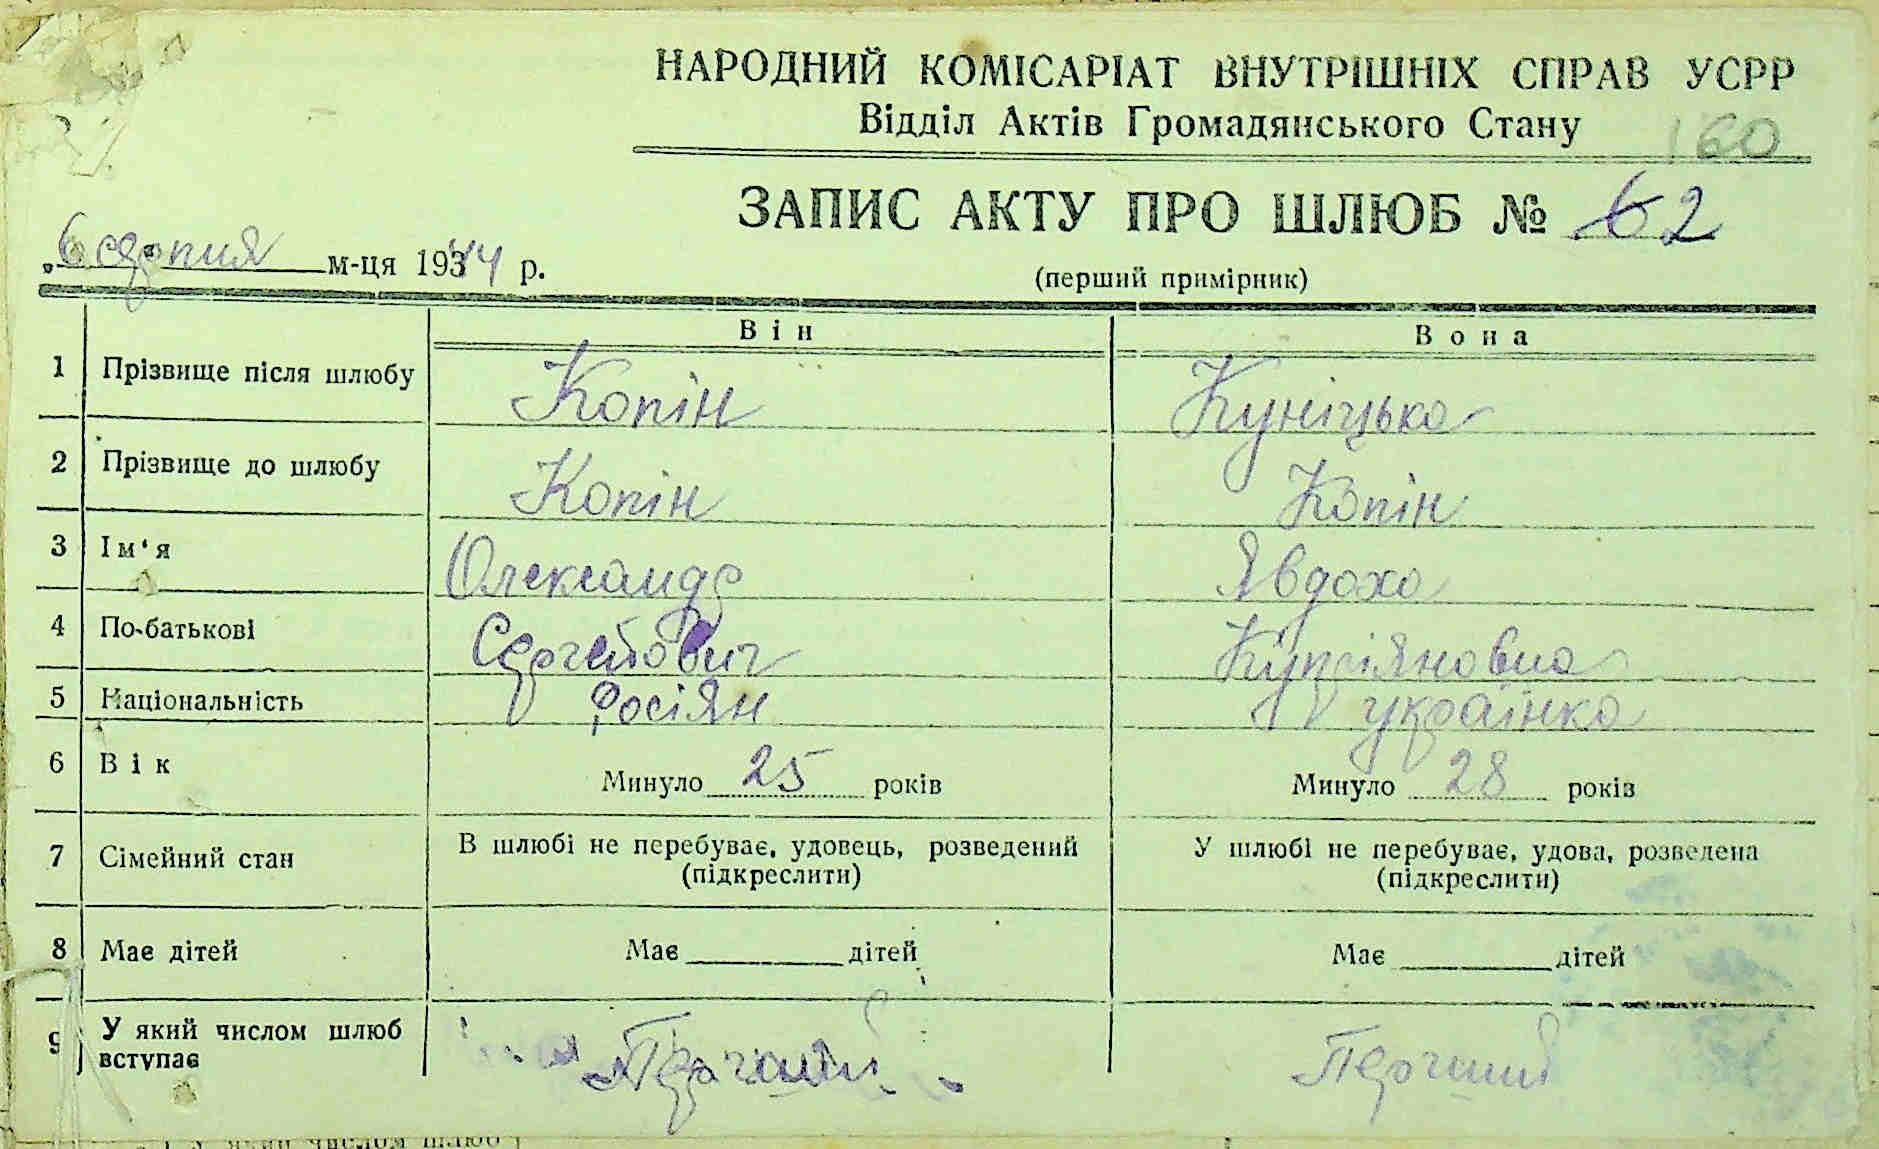 НАРОДНИЙ КОМІСАРІАТ ВНУТРІШНІХ СПРАВ УСРР
Відділ Актів Громадянського Стану 160
ЗАПИС АКТУ ПРО ШЛЮБ № 62
„6 серпня м-ця 1944 р.
(перший примірник)
Він Вона
1 Прізвище після шлюбу Копін Куніцька
2 Прізвище до шлюбу Копін Копін
3 Ім'я Олександр Явдоха
4 По-батькові Сергейович Купріяновна
5 Національність росіян українка
6 Вік Минуло 25 років Минуло 28 років
7 Сімейний стан В шлюбі не перебуває, удовець, розведений У шлюбі не перебуває, удова, розведена
(підкреслити) (підкреслити)
8 Має дітей Має дітей Має дітей
9 У який числом шлюб
вступає Перчий Перчший
У який числом шлюб